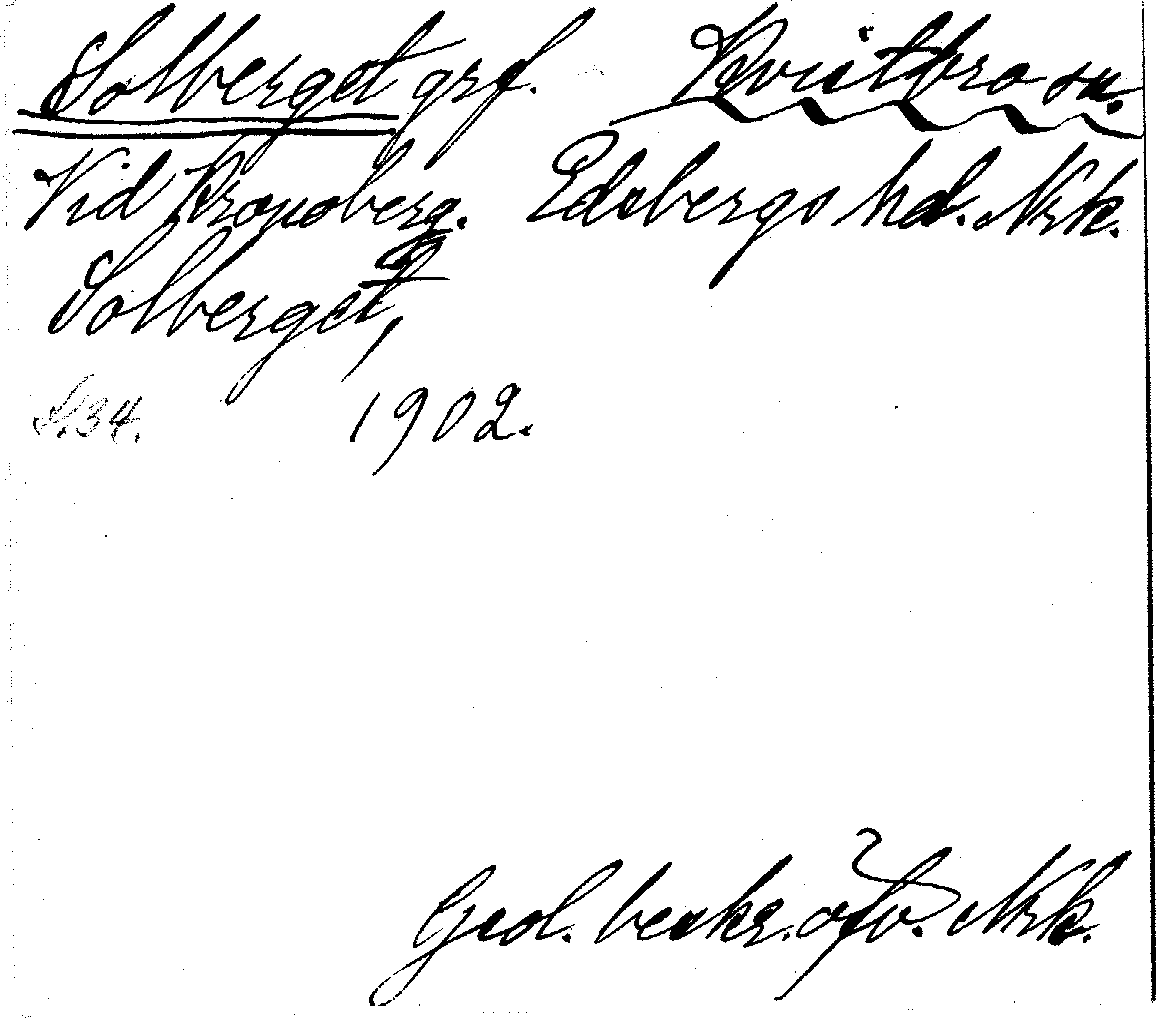 Solberget grf. Kvistbro sn.
Vid Kronoberg. Edsbergs hd. Nrk.
Solberget,
S. 34. 1902.
Geol. beskr. öfv. Nrk.